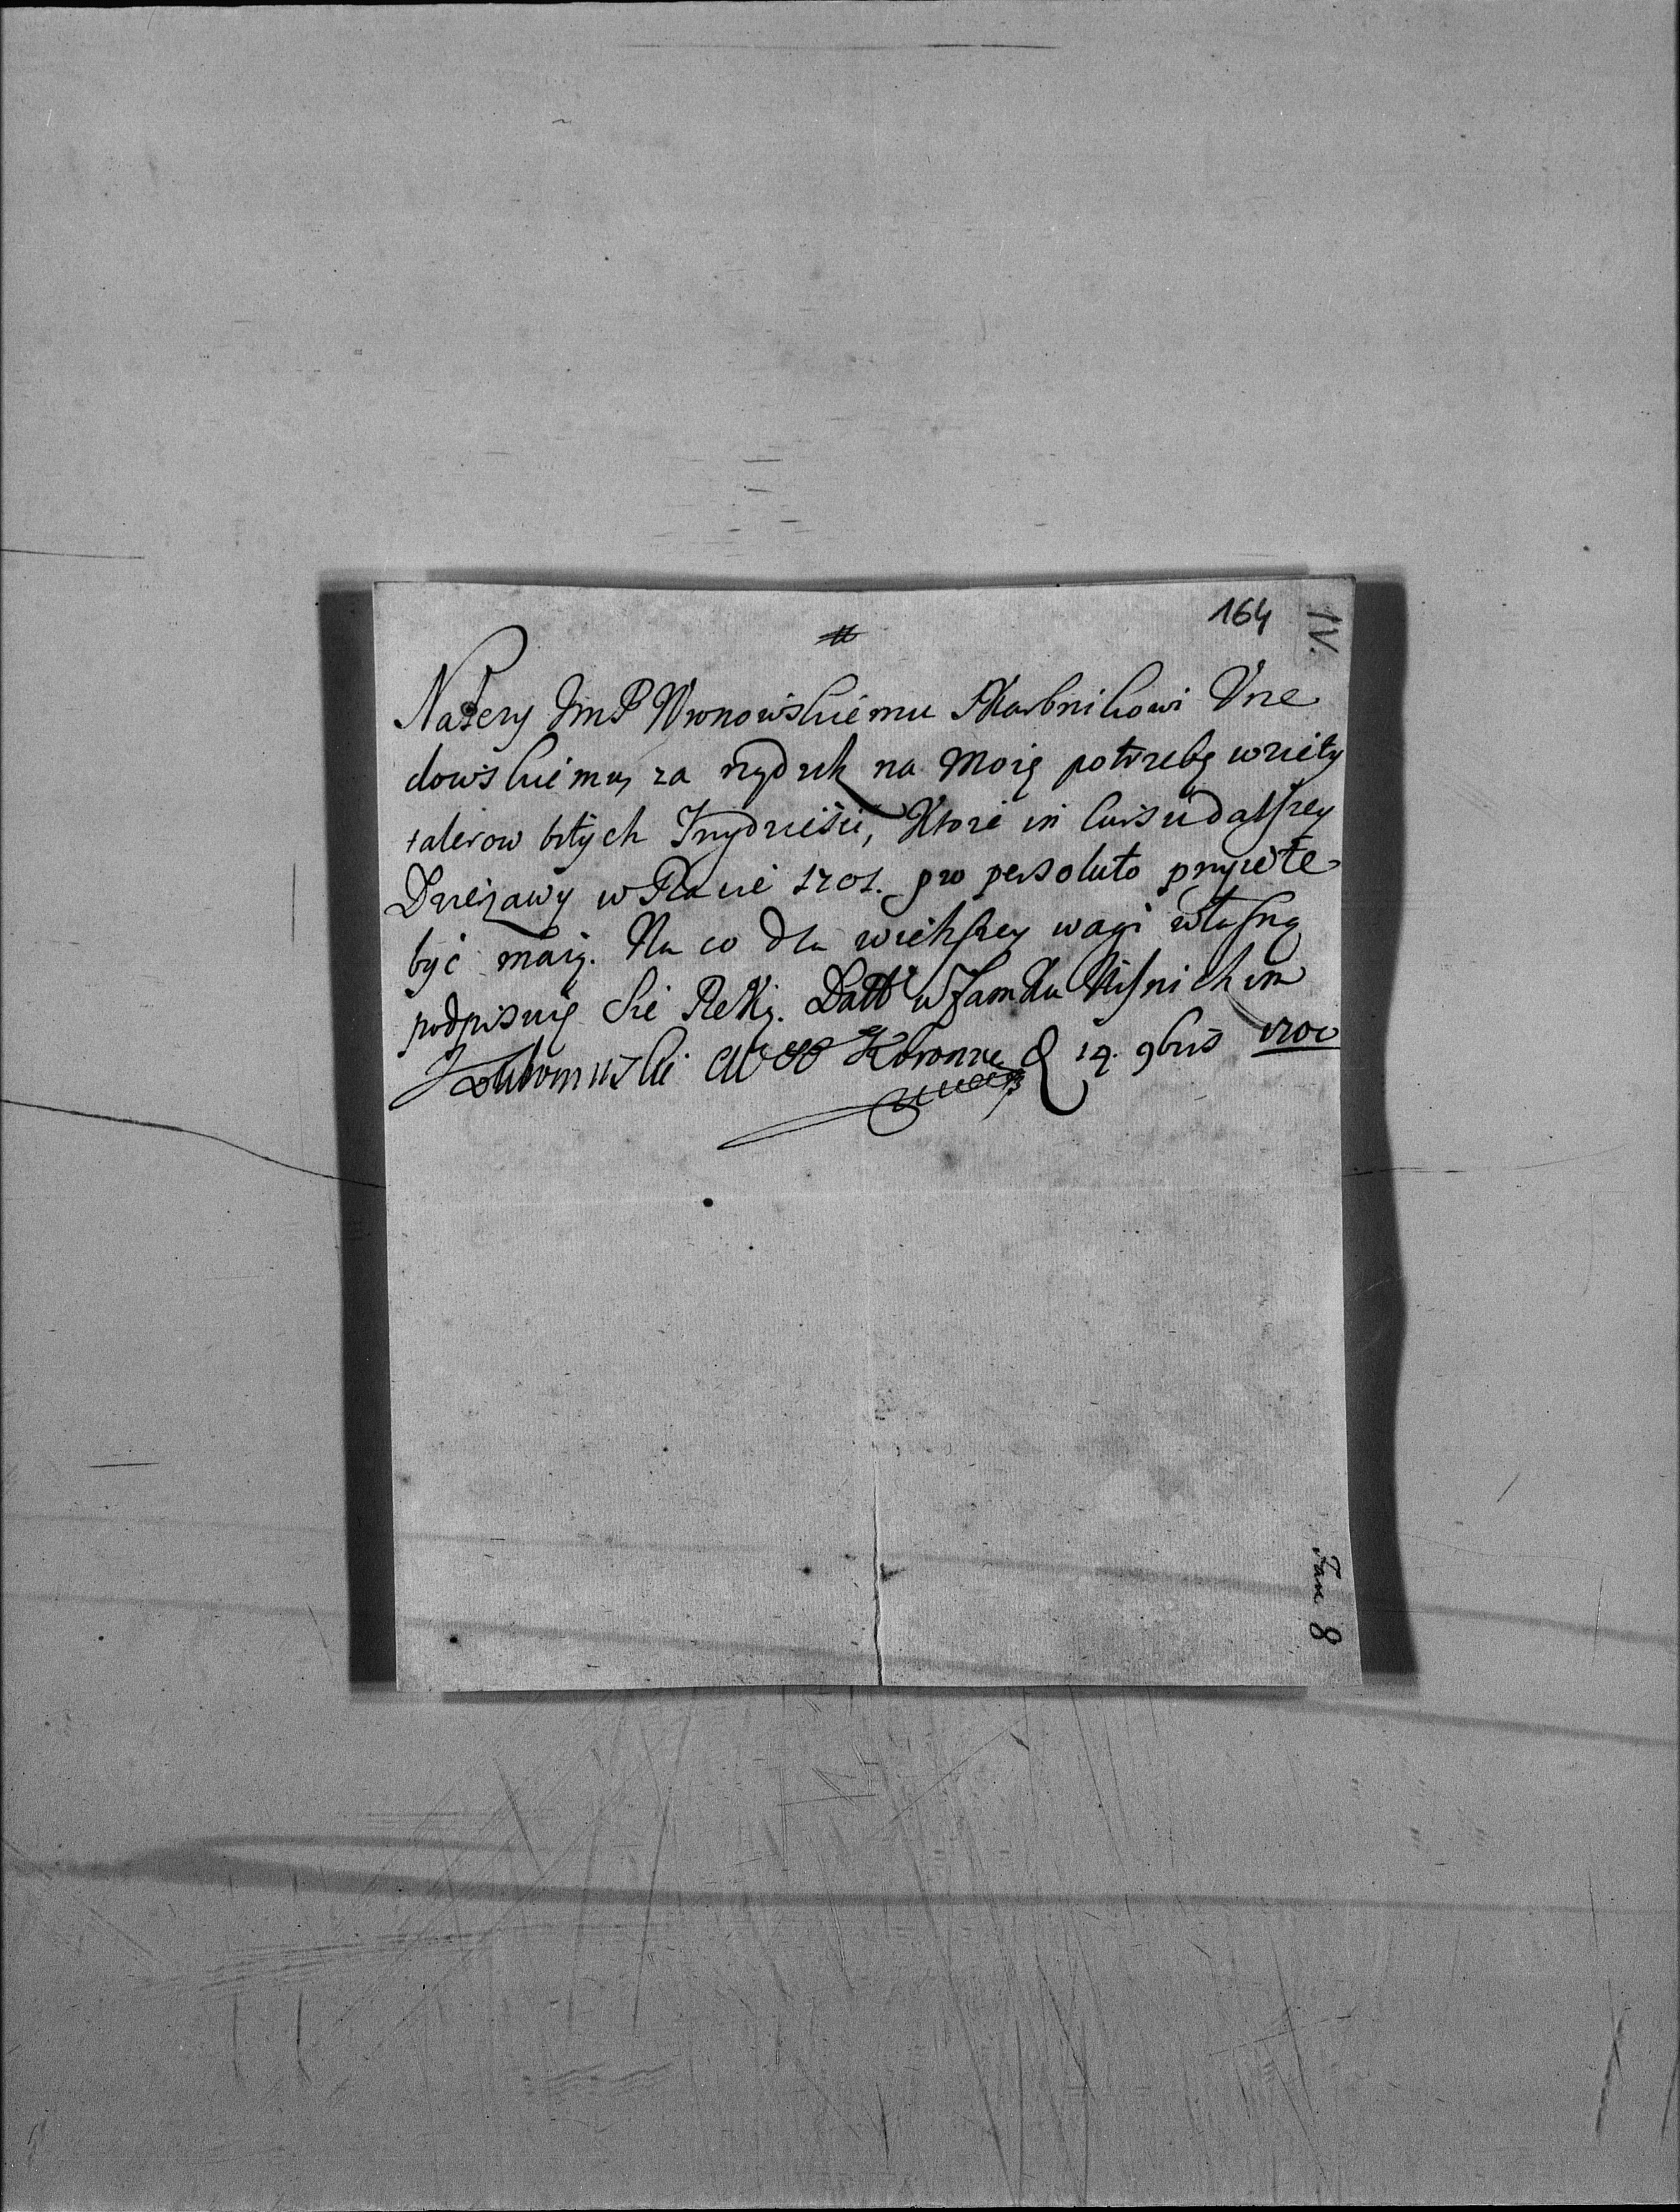 164
IV.
Należy JmP Wronowskiemu Skarbnikowi Vrze
dowskiemu za rzydzek na moię potrzebę wzięty
talerow bitych Trzydzieści, Ktore in cursu dalszey
Dzierżawy w Roku 1701. pro persoluto przyięte
być maią. Na co dla większey wagi własną
podpisuię Sie Ręką. Datt w Zamku Wisnickim
Lubomirski Koronne D 14. 9bris 1700
Fasc 8